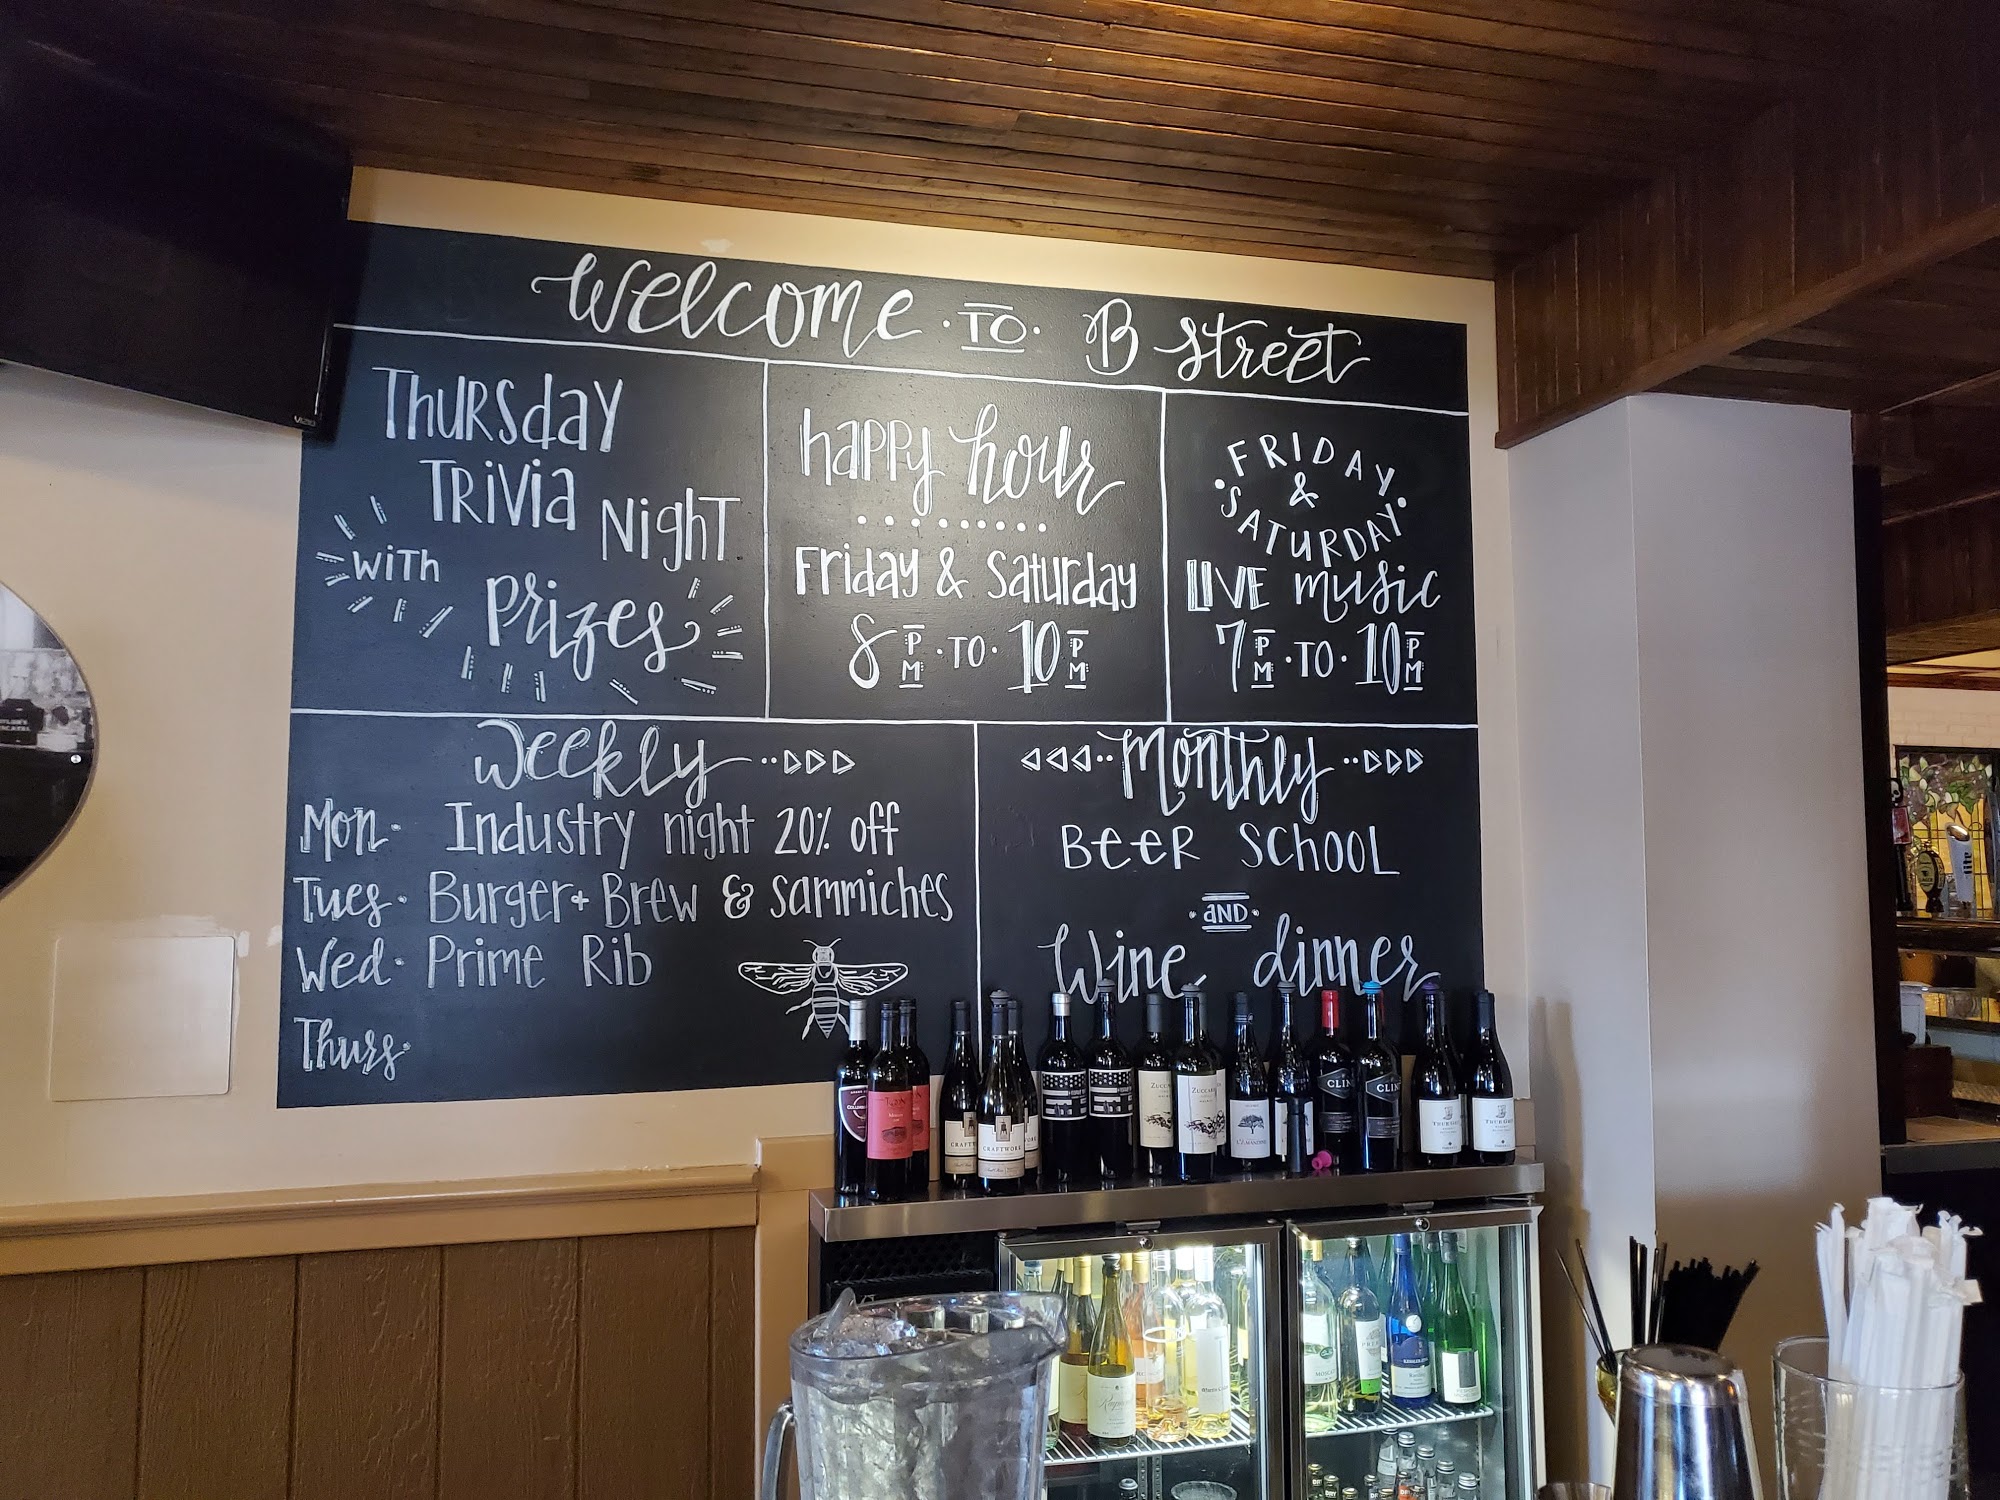 Welcome • TO • B Street
Thursday
Trivia
Night
with
Prizes
happy hour
Friday & Saturday
8 PM • TO • 10 PM
FRIDAY
&
SATURDAY
LIVE music
7 PM • TO • 10 PM
Weekly
Mon. Industry night 20% off
Tues. Burger + Brew & Sammiches
Wed. Prime Rib
Thurs.
Monthly
BEER SCHOOL
• AND •
Wine dinner
VIZIO
CRAFTWORK
CRAFTWORK
ZUCCARDI
CLINE
CLINE
Lite